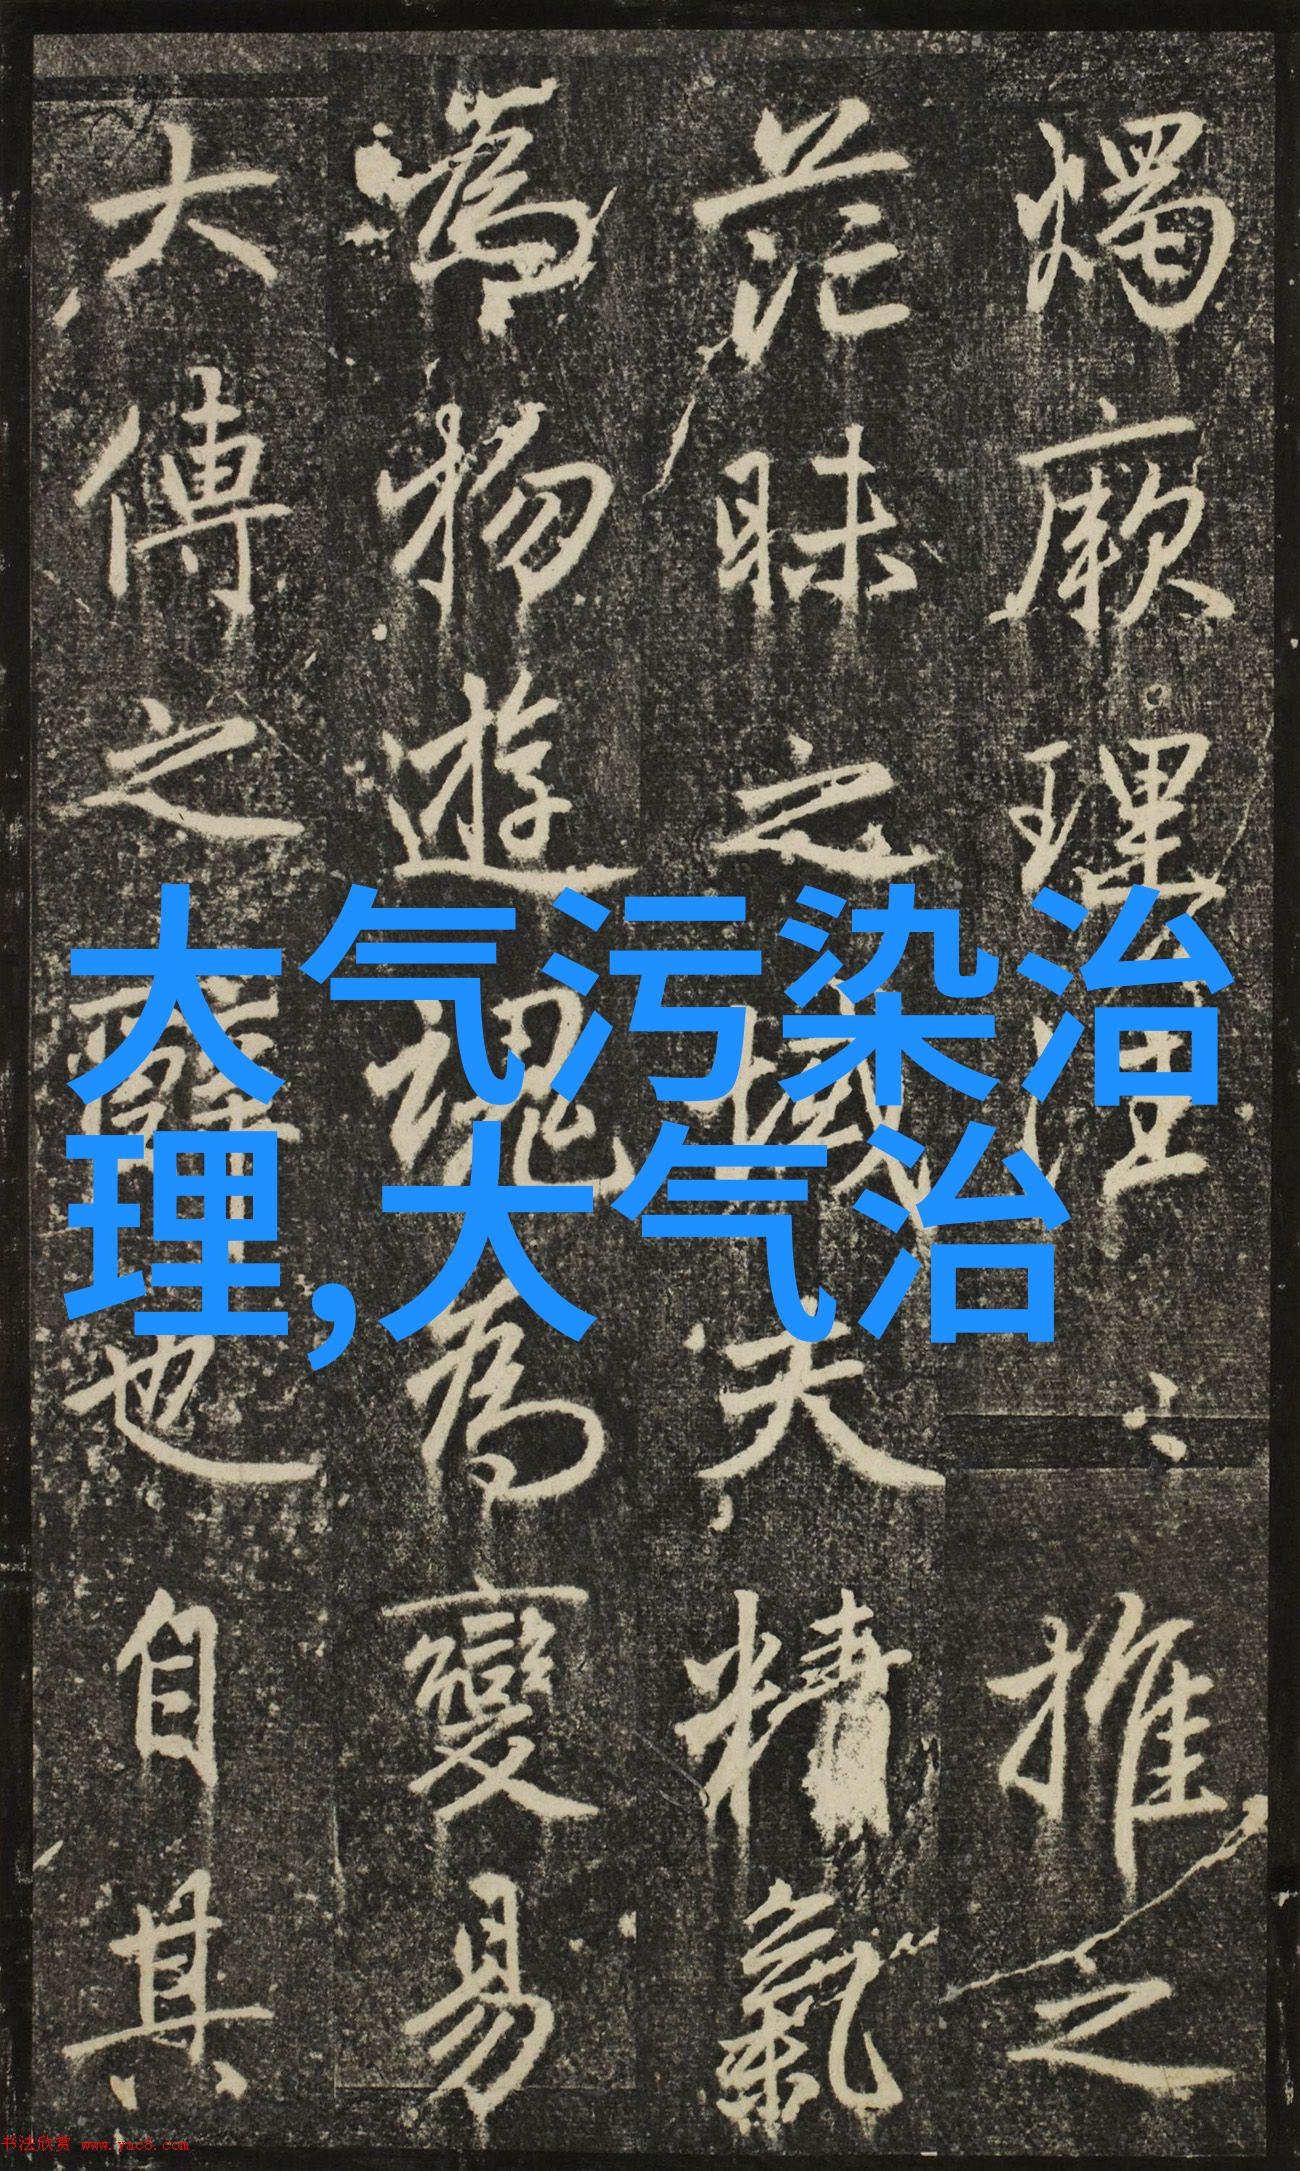 燭厥理推之
茫昧之域夫精氣
為物遊魂為變易
大傳之辭也自其
大气污染治
理,大气治
书法欣赏 www.yac8.com